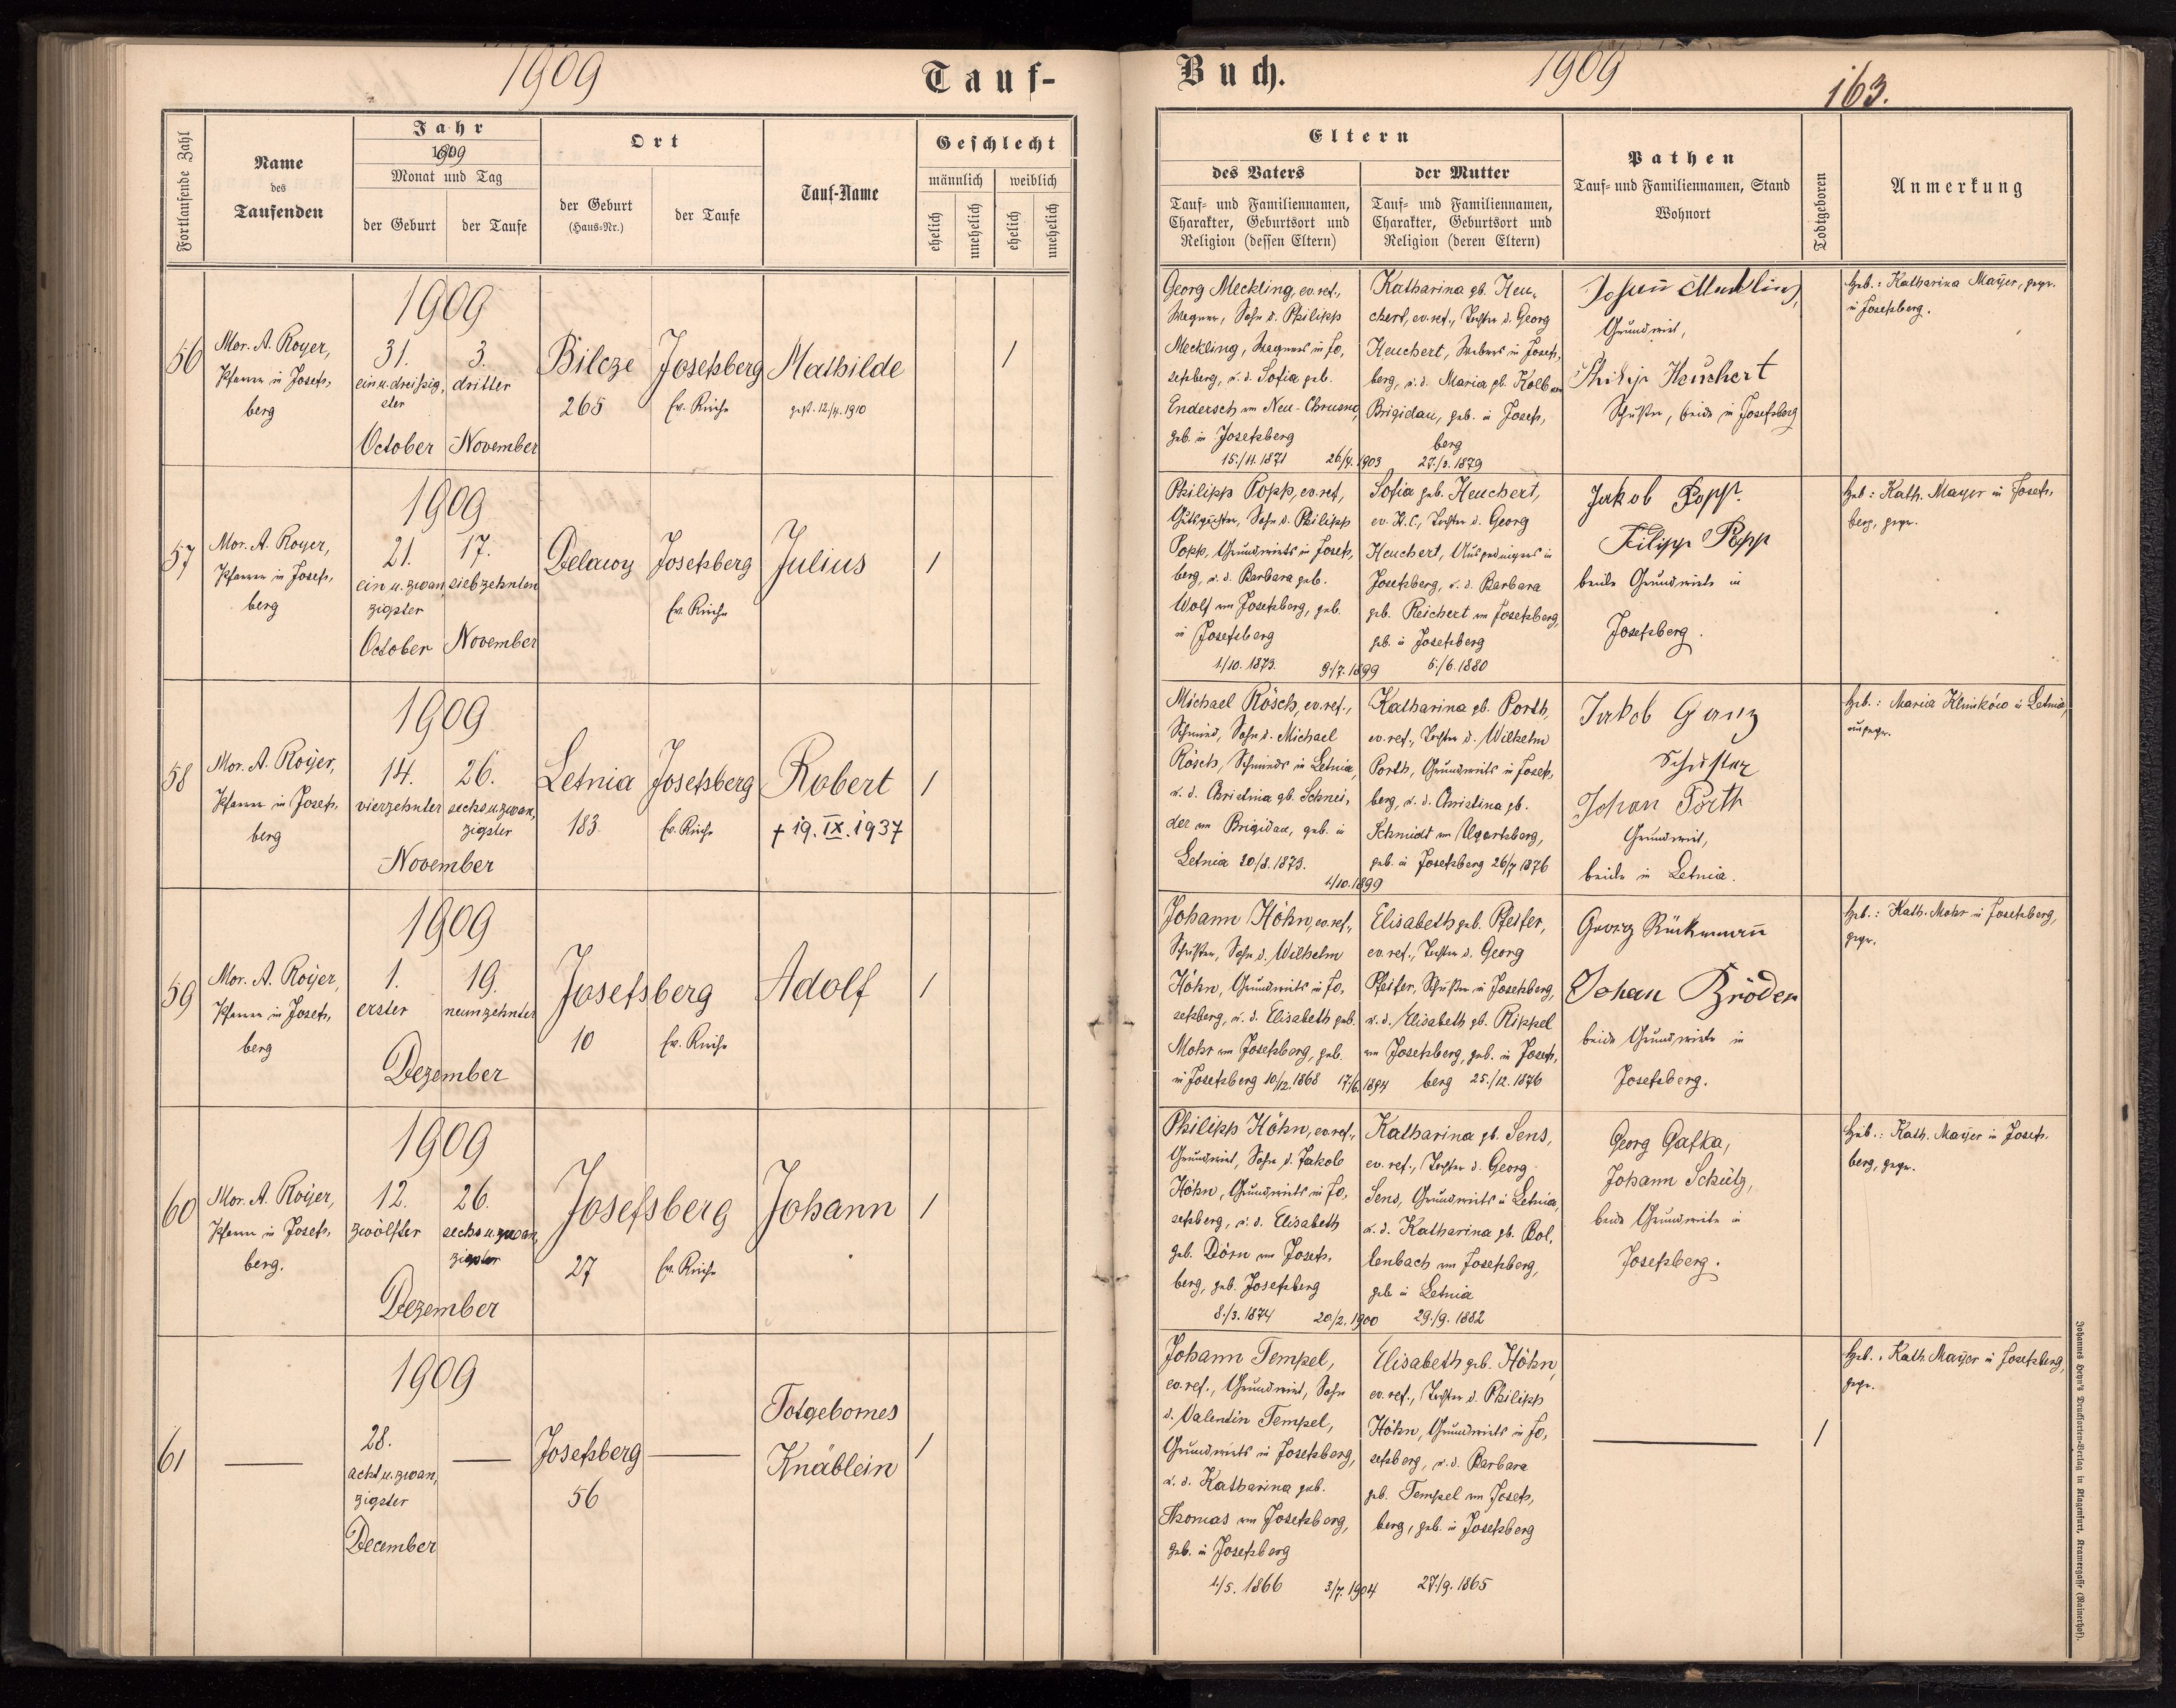 1909
Tauf-
Fortlaufende Zahl
Name
des
Taufenden
Jahr
1909
Monat und Tag
der Geburt
der Taufe
Ort
der Geburt
(Haus-Nr.)
der Taufe
Tauf-Name
Geschlecht
männlich
weiblich
ehelich
unehelich
ehelich
unehelich
56
Mor. A. Royer,
Pfarrer in Josefs,
berg
1909
31. 3.
ein u. dreißig, dritter
ster
October November
Bilcze
265
Josefsberg
Ev. Kirche
Mathilde
gest. 12/4. 1910
1
57
Mor. A. Royer,
Pfarrer in Josefs,
berg
1909
21. 17.
ein u. zwan, siebzehnten
zigster
October November
Delawy
Josefsberg
Ev. Kirche
Julius
1
58
Mor. A. Royer,
Pfarrer in Josefs,
berg
1909
14. 26.
vierzehnter sechs u. zwan,
zigster
November
Letnia
183
Josefsberg
Ev. Kirche
Robert
† 19. IX. 1937
1
59
Mor. A. Royer,
Pfarrer in Josefs,
berg
1909
1. 19.
erster neunzehnter
Dezember
Josefsberg
10
Ev. Kirche
Adolf
1
60
Mor. A. Royer,
Pfarrer in Josefs,
berg.
1909
12. 26.
zwölfter sechs u. zwan,
zigster
Dezember
Josefsberg
27
Ev. Kirche
Johann
1
61
1909
28.
acht u. zwan,
zigster
December
Josefsberg
56
Totgebornes
Knäblein
1
Buch.
1909
163.
Eltern
des Vaters
Tauf- und Familiennamen,
Charakter, Geburtsort und
Religion (dessen Eltern)
der Mutter
Tauf- und Familiennamen,
Charakter, Geburtsort und
Religion (deren Eltern)
Pathen
Tauf- und Familiennamen, Stand
Wohnort
Todtgeboren
Anmerkung
Georg Meckling, ev. ref.,
Wagner, Sohn d. Philipp
Meckling, Wagners in Jo,
sefsberg, u. d. Sofia geb.
Endersch von Neu-Chrusno,
geb. in Josefsberg
15./11. 1871
26/4. 1903
Katharina gb. Heu,
chert, ev. ref., Tochter d. Georg
Heuchert, Webers in Josefs,
berg, u. d. Maria gb. Kolb von
Brigidau, geb. in Josefs,
berg
27./3. 1879
Grundwirt,
Philip Heuchert
Schuster, beide in Josefsberg
Heb.: Katharina Mayer, gepr.
in Josefsberg.
Philipp Popp, ev. ref.,
Gutspächter, Sohn d. Philipp
Popp, Grundwirts in Josefs,
berg, u. d. Barbara geb.
Wolf von Josefsberg, geb.
in Josefsberg
1/10. 1873.
9/7. 1899
Sofia geb. Heuchert,
ev. H.C., Tochter d. Georg
Heuchert, Ausgedingers in
Josefsberg, u. d. Barbara
geb. Reichert von Josefsberg,
geb. in Josefsberg
6./6. 1880
Jakob Popp.
Filipp Popp
beide Grundwirte in
Josefsberg.
Heb: Kath. Mayer in Josefs,
berg, gepr.
Michael Rösch, ev. ref.,
Schmied, Sohn d. Michael
Rösch, Schmieds in Letnia,
u. d. Christina gb. Schnei,
der von Brigidau, geb. in
Letnia 20/8. 1873.
1/10. 1899
Katharina gb. Porth,
ev. ref., Tochter d. Wilhelm
Porth, Grundwirts in Josefs,
berg, u. d. Christina gb.
Schmidt von Ugartsberg,
geb. in Josefsberg 26/7 1876
Jakob Ganz
Schuster
Johan Porth
Grundwirt,
beide in Letnia.
Heb.: Maria Klimków in Letnia,
ungepr.
Johann Höhn, ev. ref.,
Schuster, Sohn d. Wilhelm
Höhn, Grundwirts in Jo,
sefsberg, u. d. Elisabeth geb.
Mohr von Josefsberg, geb.
in Josefsberg 10/12. 1868
17/6. 1894
Elisabeth geb. Pfeifer,
ev. ref., Tochter d. Georg
Pfeifer, Schuster in Josefsberg,
u. d. Elisabeth gb. Rippel
von Josefsberg, geb. in Josefs,
berg 25./12. 1876
Georg Rückemann
Johan Bröder
beide Grundwirte in
Josefsberg.
Heb.: Kath. Mohr in Josefsberg,
gepr.
Philipp Höhn, ev. ref.,
Grundwirt, Sohn d. Jakob
Höhn, Grundwirts in Jo,
sefsberg, u. d. Elisabeth
geb. Dörn von Josefs,
berg, geb. Josefsberg
8./3. 1874
20/2. 1900
Katharina gb. Sens,
ev. ref., Tochter d. Georg
Sens, Grundwirts in Letnia,
u. d. Katharina gb. Bol,
lenbach von Josefsberg,
geb in Letnia
29./9. 1882
Georg Gafka,
Johann Schütz,
beide Grundwirte in
Josefsberg.
Heb.: Kath. Mayer in Josefs,
berg, gepr.
Johann Tempel,
ev. ref., Grundwirt, Sohn
d. Valentin Tempel,
Grundwirts in Josefsberg,
u. d. Katharina geb.
Thomas von Josefsberg,
geb. in Josefsberg
1./5. 1866
3/7. 1904
Elisabeth geb. Höhn,
ev. ref., Tochter d. Philipp
Höhn, Grundwirts in Jo,
sefsberg, u. d. Barbara
geb. Tempel von Josefs,
berg, geb. in Josefsberg
27./9. 1865
1
Heb.: Kath. Mayer in Josefsberg,
gepr.
Johannes Heyn's Drucksorten-Verlag in Klagenfurt, Kramergasse (Rainerhof).